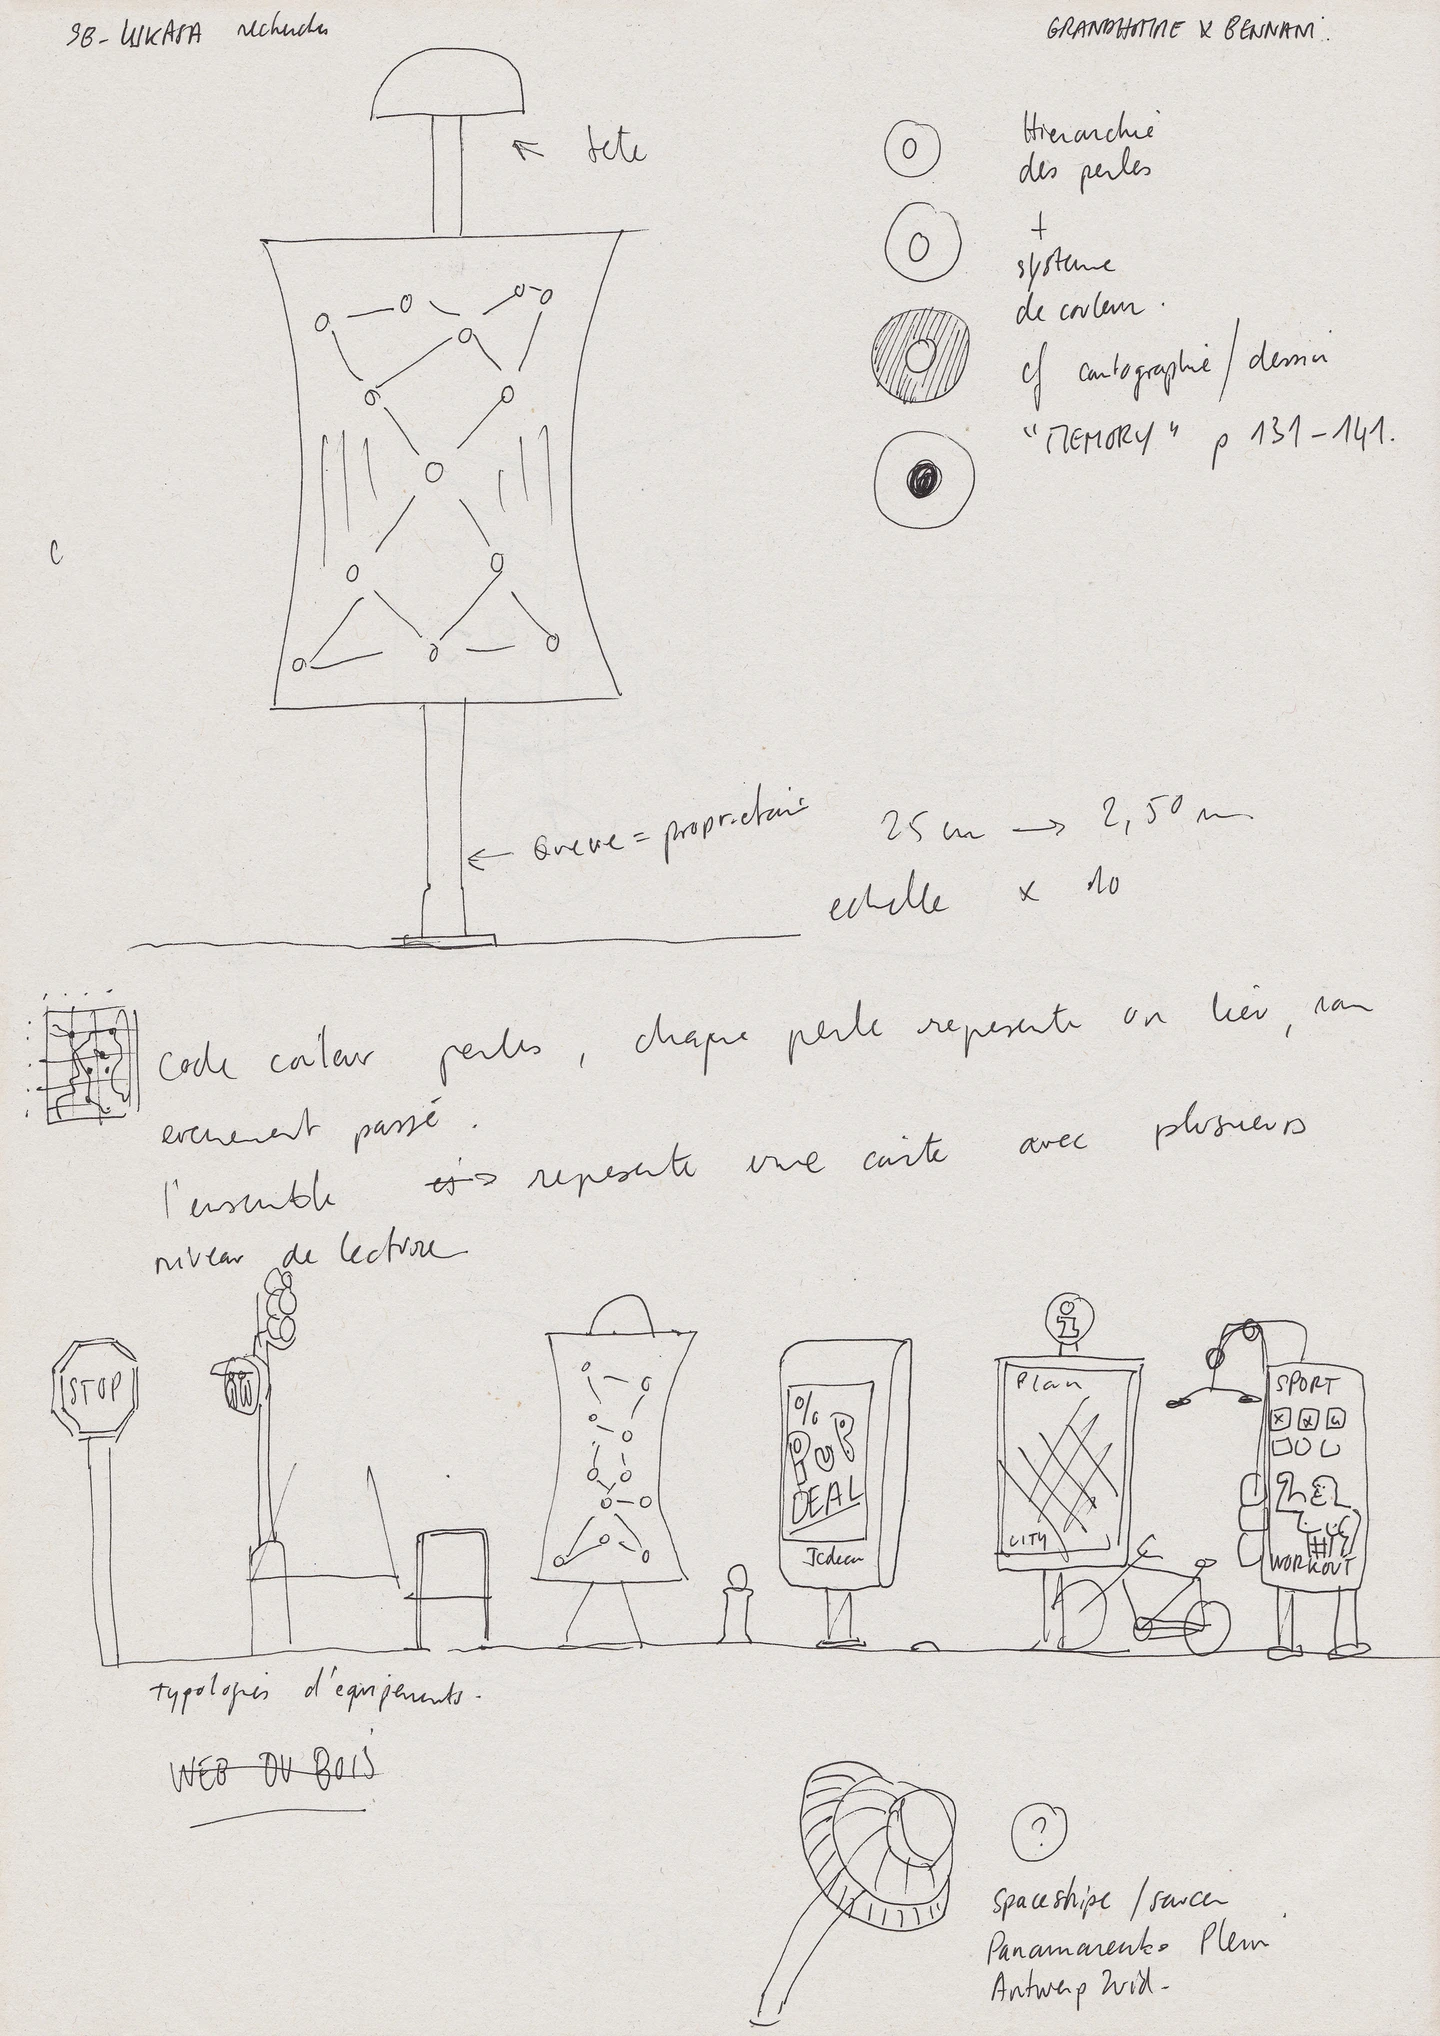 SB - LUKASA recherches
GRANDHOMME X BENNANI.
tete
Hierarchie
des perles
+
systeme
de couleur.
cf cartographie / dessin
"MEMORY" p 131-141.
C
Queue = proprietaire
25 cm → 2,50 m
echelle x 10
Code couleur perles, chaque perle represente un lieu, un
evenement passé.
l'ensemble represente une carte avec plusieurs
niveau de lecture
STOP
i
% PUB
DEAL
JCdecau
Plan
CITY
SPORT
#
WORKOUT
typologies d'équipements.
WEB DU BOIS
?
Spaceshipe / saucer
Panamarenko Plein
Antwerp Zuid.